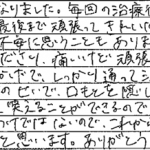 なりました。毎回の治療行
最後まで頑張ってきれいに
不安に思うこともありま
ださり、痛いけど頑張
んだで、しっかり通って
のせいで、口もとを隠し
笑えることができるので
けではないので、これか
と思います。ありがとう